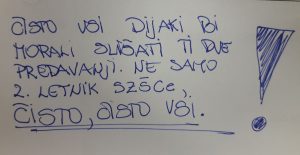 ČISTO VSI DIJAKI BI
MORALI SLIŠATI TI DVE
PREDAVANJI. NE SAMO
2. LETNIK SZŠCE,
ČISTO, ČISTO VSI.
!